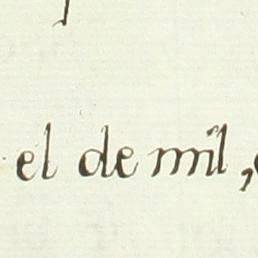 el de mil,